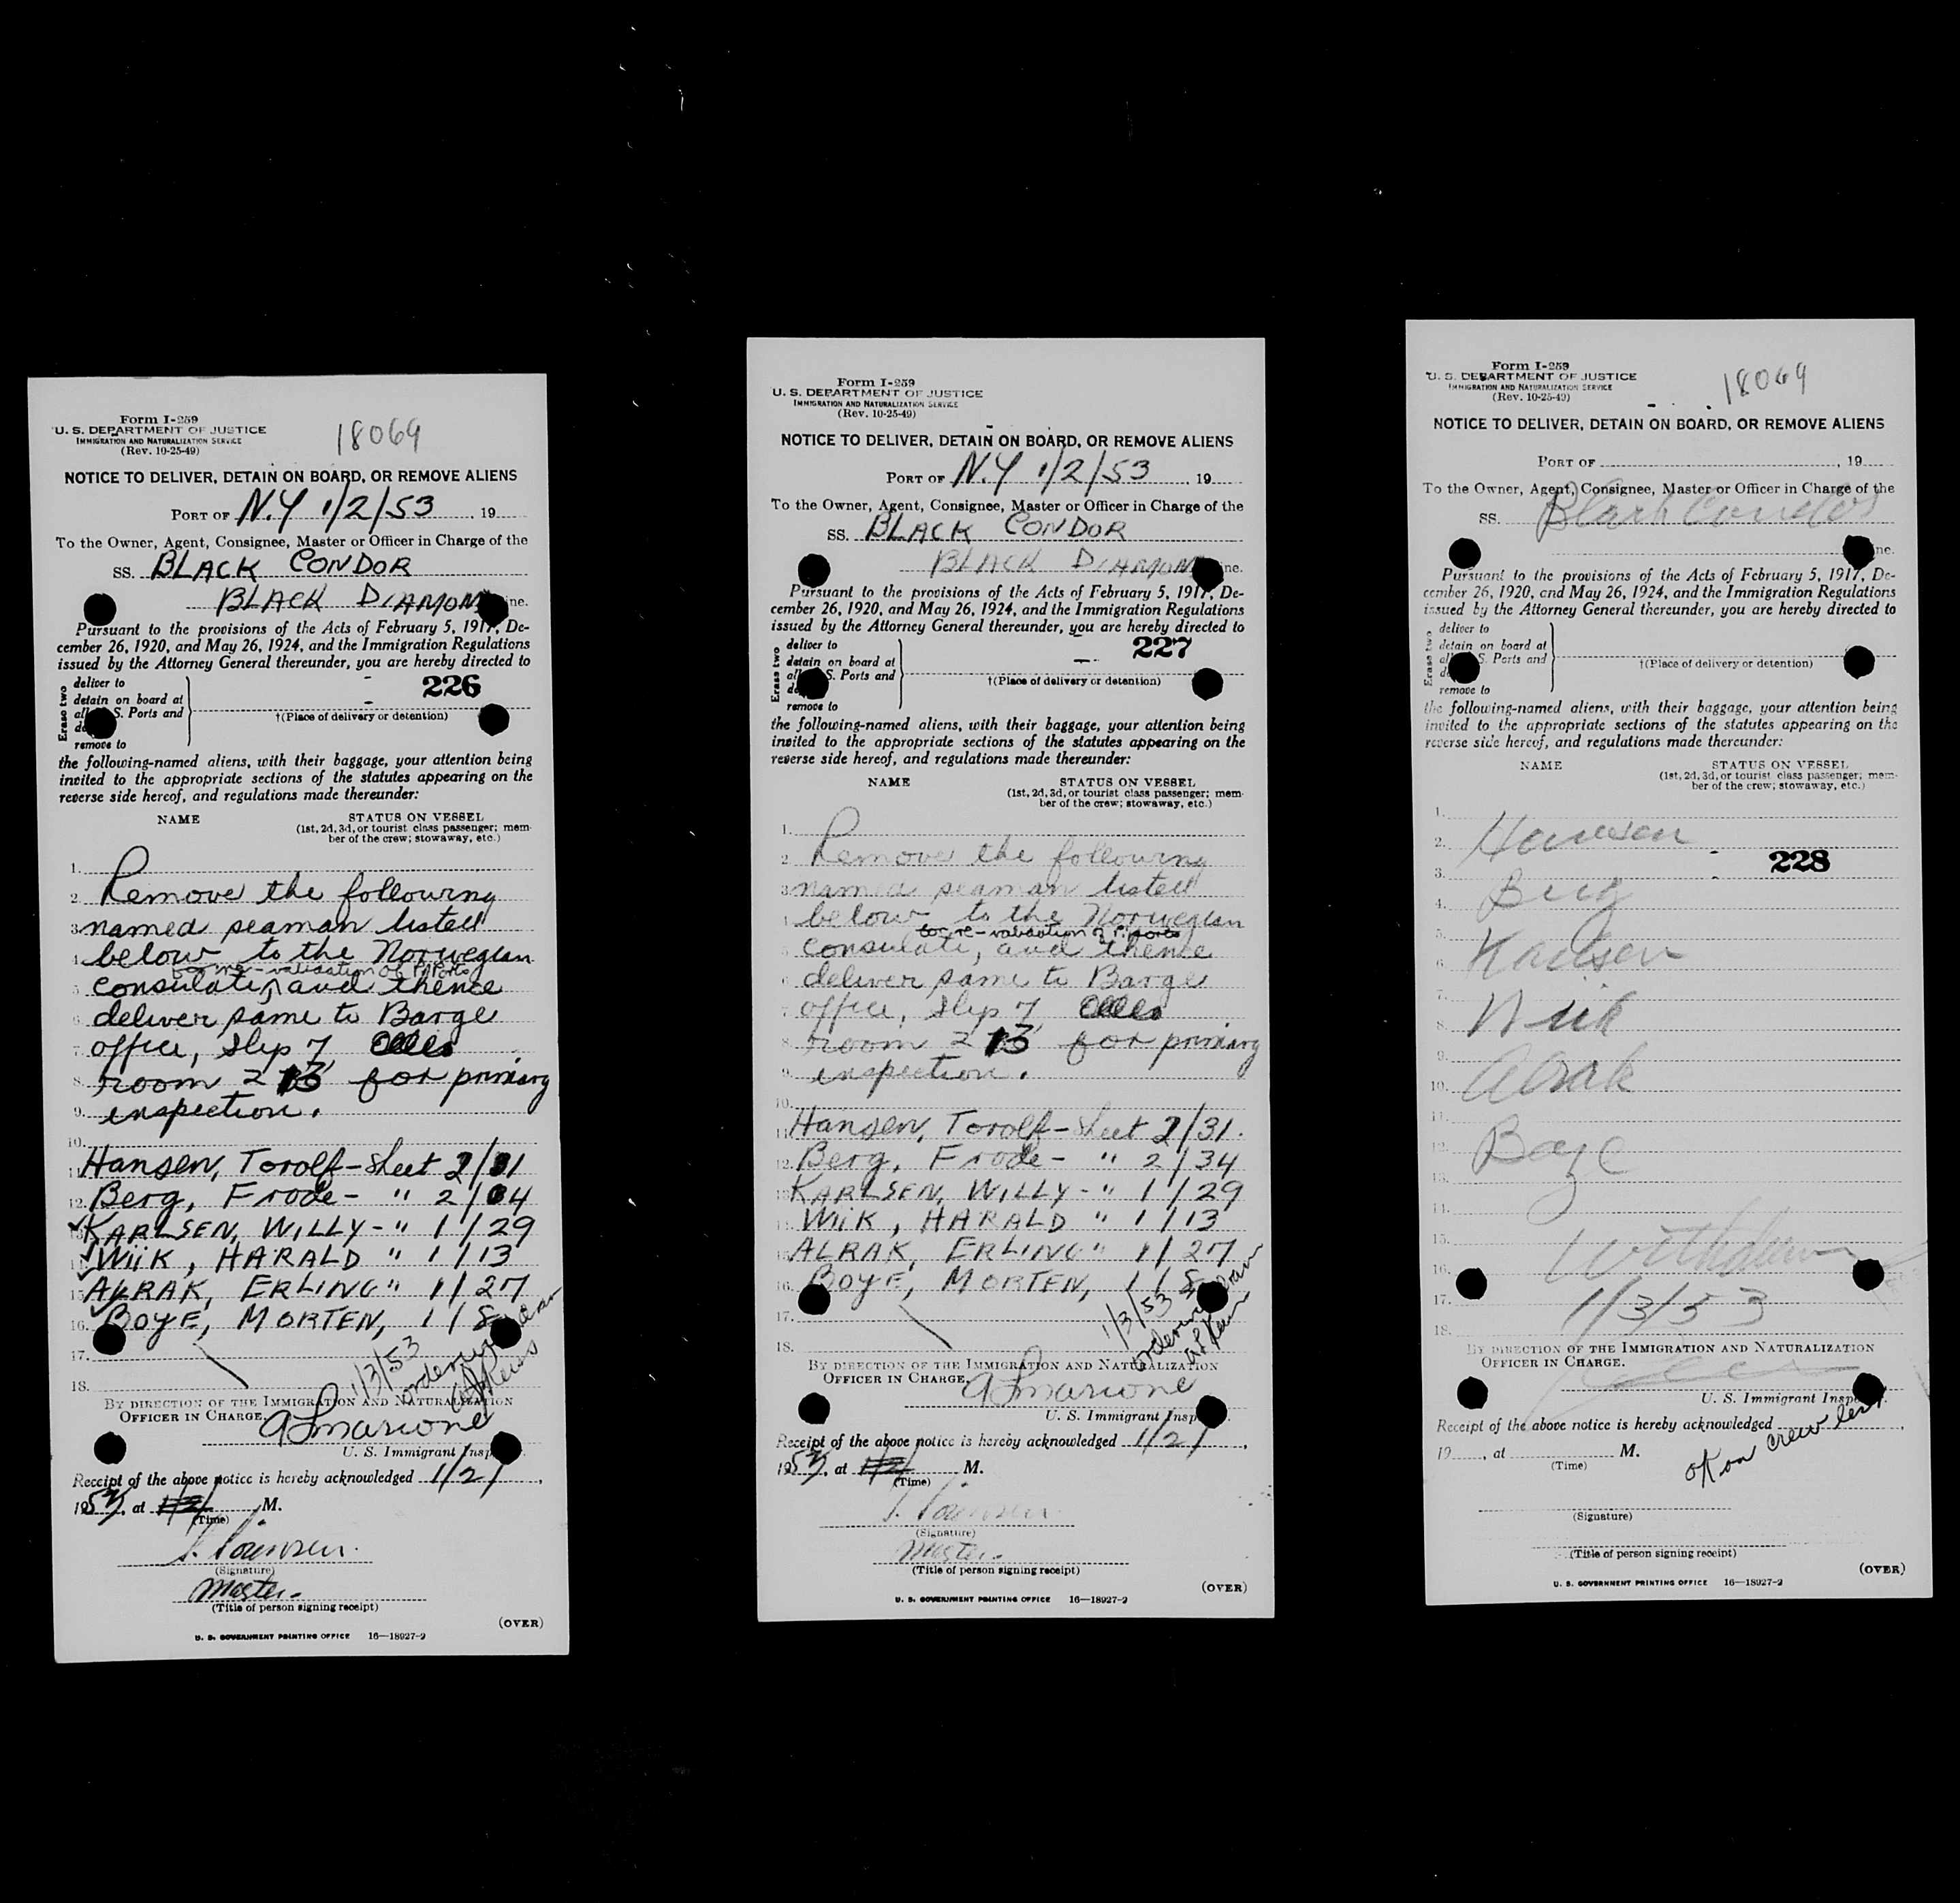 Form I-259
U. S. DEPARTMENT OF JUSTICE
IMMIGRATION AND NATURALIZATION SERVICE
(Rev. 10-25-49)
18069
NOTICE TO DELIVER, DETAIN ON BOARD, OR REMOVE ALIENS
PORT OF N.Y 1/2/53, 19
To the Owner, Agent, Consignee, Master or Officer in Charge of the
SS. BLACK CONDOR
BLACK DIAMOND Line.
Pursuant to the provisions of the Acts of February 5, 1917, De-
cember 26, 1920, and May 26, 1924, and the Immigration Regulations
issued by the Attorney General thereunder, you are hereby directed to
Erase two
deliver to
detain on board at
all U. S. Ports and
remove to
226
†(Place of delivery or detention)
the following-named aliens, with their baggage, your attention being
invited to the appropriate sections of the statutes appearing on the
reverse side hereof, and regulations made thereunder:
NAME STATUS ON VESSEL
(1st, 2d, 3d, or tourist class passenger; mem-
ber of the crew; stowaway, etc.)
1.
2. Remove the following
3. named seaman listed
4. below to the Norwegian
for re-validation of P/Ports
5. consulate, and thence
6. deliver same to Barge
7. office, Slip 7
8. room 213 for primary
9. inspection.
10.
11. Hansen, Torolf - Sheet 2/31
12. Berg, Frode - " 2/34
13. KARLSEN, WILLY - " 1/29
14. WiiK, HARALD " 1/13
15. ALRAK, ERLING " 1/27
16. BOYE, MORTEN, 1/8
17.
18.
1/3/53
BY DIRECTION OF THE IMMIGRATION AND NATURALIZATION
OFFICER IN CHARGE.
U. S. Immigrant Insp.
Receipt of the above notice is hereby acknowledged 1/2/,
1953, at M.
(Time)
(Signature)
Master.
(Title of person signing receipt)
(OVER)
U. S. GOVERNMENT PRINTING OFFICE 16—18927-2
Form I-259
U. S. DEPARTMENT OF JUSTICE
IMMIGRATION AND NATURALIZATION SERVICE
(Rev. 10-25-49)
NOTICE TO DELIVER, DETAIN ON BOARD, OR REMOVE ALIENS
PORT OF N.Y 1/2/53, 19
To the Owner, Agent, Consignee, Master or Officer in Charge of the
SS. BLACK CONDOR
BLACK DIAMOND Line.
Pursuant to the provisions of the Acts of February 5, 1917, De-
cember 26, 1920, and May 26, 1924, and the Immigration Regulations
issued by the Attorney General thereunder, you are hereby directed to
Erase two
deliver to
detain on board at
all U. S. Ports and
remove to
227
†(Place of delivery or detention)
the following-named aliens, with their baggage, your attention being
invited to the appropriate sections of the statutes appearing on the
reverse side hereof, and regulations made thereunder:
NAME STATUS ON VESSEL
(1st, 2d, 3d, or tourist class passenger; mem-
ber of the crew; stowaway, etc.)
1.
2. Remove the following
3. named seaman listed
4. below to the Norwegian
for re-validation of P/ports
5. consulate, and thence
6. deliver same to Barge
7. office, Slip 7
8. room 213 for primary
9. inspection.
10.
11. Hansen, Torolf - Sheet 2/31.
12. Berg, Frode - " 2/34
13. KARLSEN, WILLY - " 1/29
14. WiiK, HARALD " 1/13
15. ALRAK, ERLING " 1/27
16. BOYE, MORTEN, 1/8
17.
18.
1/3/53
BY DIRECTION OF THE IMMIGRATION AND NATURALIZATION
OFFICER IN CHARGE.
U. S. Immigrant Insp.
Receipt of the above notice is hereby acknowledged 1/2/,
1953, at M.
(Time)
(Signature)
Master.
(Title of person signing receipt)
(OVER)
U. S. GOVERNMENT PRINTING OFFICE 16—18927-2
Form I-259
U. S. DEPARTMENT OF JUSTICE
IMMIGRATION AND NATURALIZATION SERVICE
(Rev. 10-25-49)
18069
NOTICE TO DELIVER, DETAIN ON BOARD, OR REMOVE ALIENS
PORT OF , 19
To the Owner, Agent, Consignee, Master or Officer in Charge of the
SS. Black Condor
Line.
Pursuant to the provisions of the Acts of February 5, 1917, De-
cember 26, 1920, and May 26, 1924, and the Immigration Regulations
issued by the Attorney General thereunder, you are hereby directed to
Erase two
deliver to
detain on board at
all U. S. Ports and
remove to
†(Place of delivery or detention)
the following-named aliens, with their baggage, your attention being
invited to the appropriate sections of the statutes appearing on the
reverse side hereof, and regulations made thereunder:
NAME STATUS ON VESSEL
(1st, 2d, 3d, or tourist class passenger; mem-
ber of the crew; stowaway, etc.)
1.
2. Hansen
3. 228
4. Berg
5.
6. Karlsen
7.
8. Wiik
9.
10. Alrak
11.
12. Boye
13.
14.
15.
16. Withdrawn
17. 1/3/53
18.
BY DIRECTION OF THE IMMIGRATION AND NATURALIZATION
OFFICER IN CHARGE.
U. S. Immigrant Insp.
Receipt of the above notice is hereby acknowledged ,
19 , at M.
(Time)
OK on crew list
(Signature)
(Title of person signing receipt)
(OVER)
U. S. GOVERNMENT PRINTING OFFICE 16—18927-2